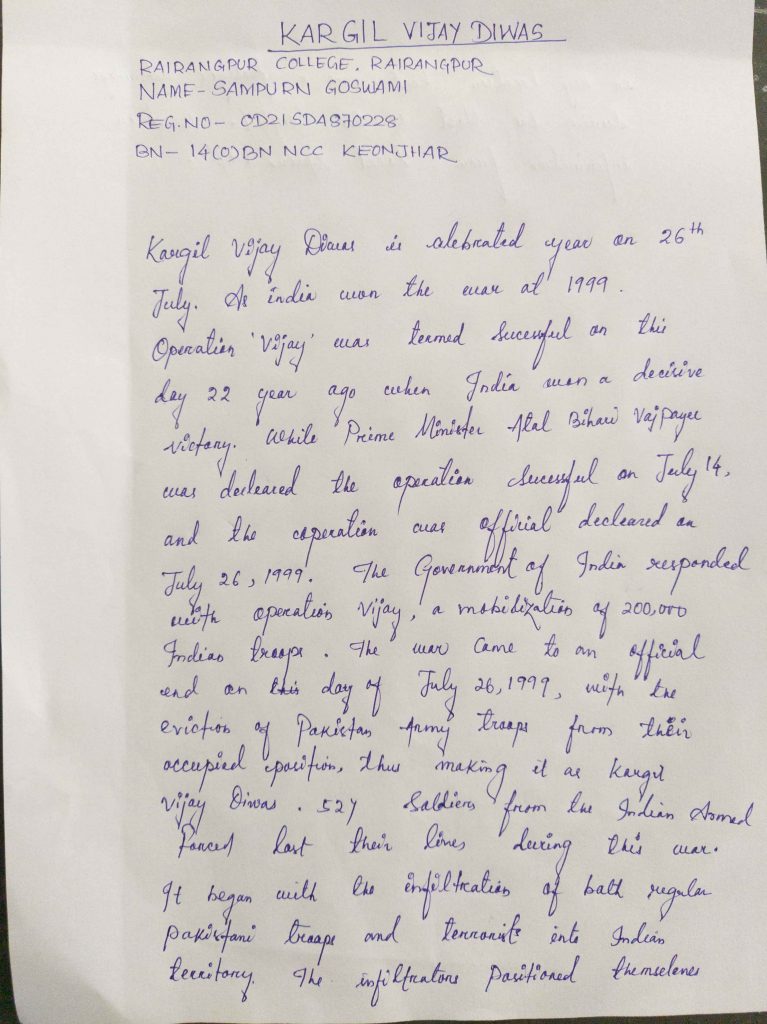 KARGIL VIJAY DIWAS
RAIRANGPUR COLLEGE. RAIRANGPUR
NAME- SAMPURN GOSWAMI
REG.NO- OD21SDA870228
BN- 14(O)BN NCC KEONJHAR
Kargil Vijay Diwas is alebrated year on 26th
July. As india won the war at 1999.
Operation 'Vijay' was termed Sucessful on this
day 22 year ago when India won a decisive
victory. While Prime Minister Atal Bihari Vajpayee
was decleared the operation Sucessful on July 14,
and the coperation was official decleared on
July 26, 1999. The Government of India responded
with operation Vijay, a mobidization of 200,000
Indian troops. The war came to an official
end on this day of July 26, 1999, with the
eviction of Pakistan Army troops from their
occupied position, thus making it as Kargil
Vijay Diwas. 527 Soldiers from the Indian Armed
Forced lost their lives during this war.
It began with the infiltration of both regular
Pakistani troops and terrorists into Indian
territory. The infiltrators positioned themselves